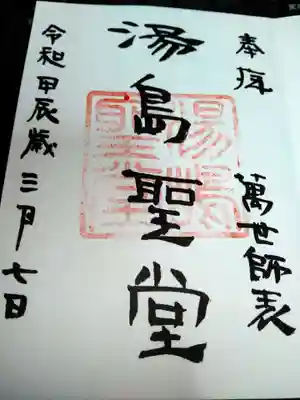 奉拝 萬世師表
湯島聖堂
令和甲辰歳三月七日
湯島
聖堂